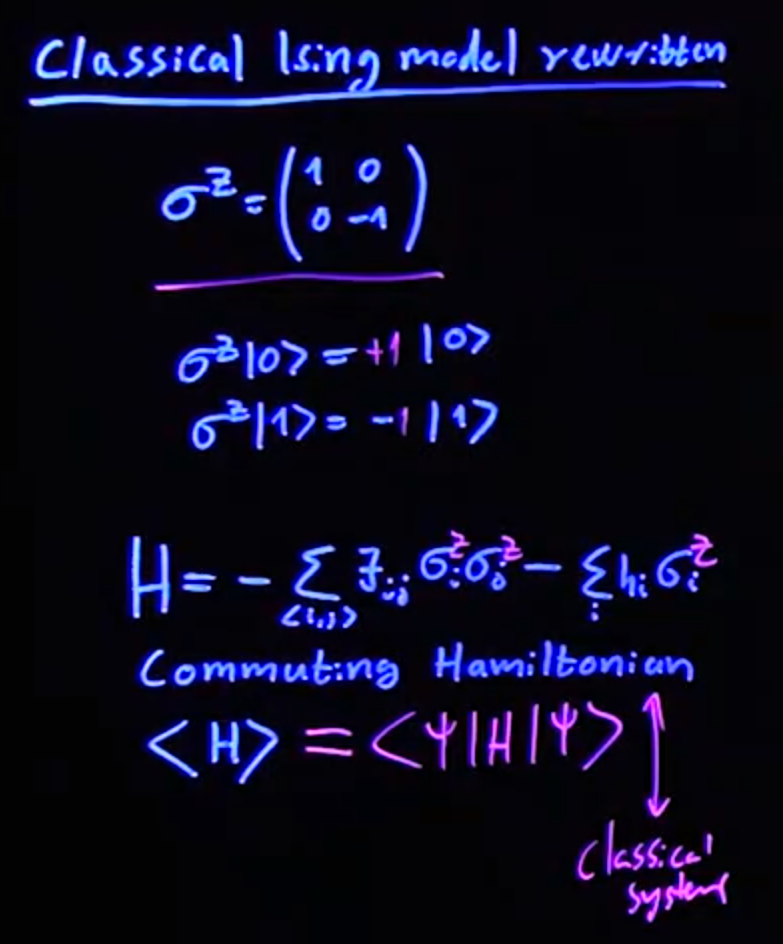 Classical Ising model rewritten
σ^z = (1 0
0 -1)
σ^z|0> = +1 |0>
σ^z|1> = -1 |1>
H = - Σ_<i,j> J_ij σ_i^z σ_j^z - Σ_i h_i σ_i^z
Commuting Hamiltonian
<H> = <Ψ|H|Ψ>
Classical
systems